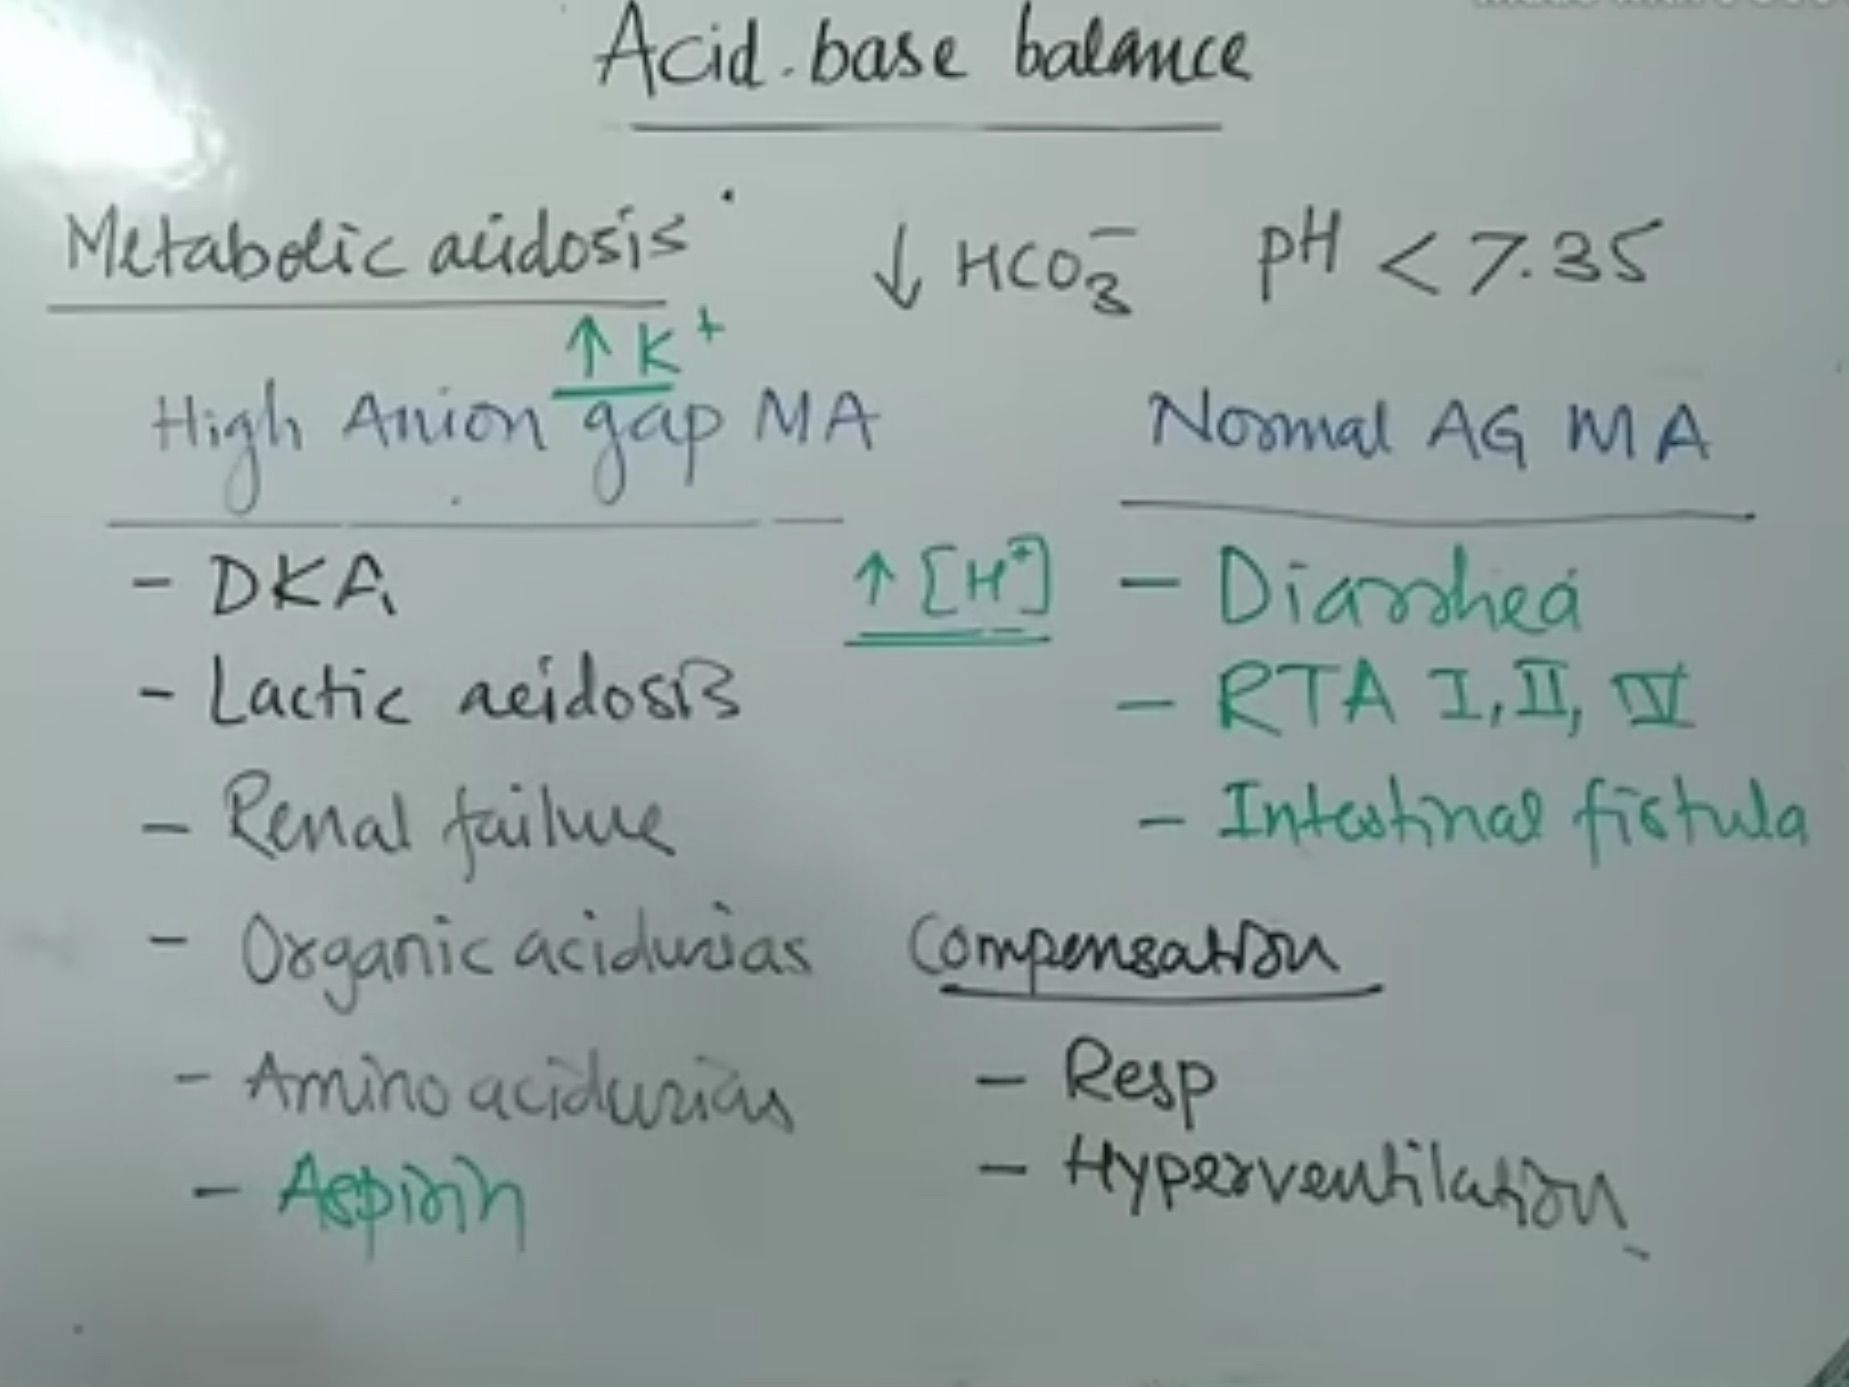 Acid-base balance
Metabolic acidosis ↓ HCO₃⁻ pH < 7.35
↑ K⁺
High Anion gap MA
- DKA
- Lactic acidosis
- Renal failure
- Organic acidurias
- Amino acidurias
- Aspirin
↑ [H⁺]
Normal AG MA
- Diarrhea
- RTA I, II, IV
- Intestinal fistula
Compensation
- Resp
- Hyperventilation